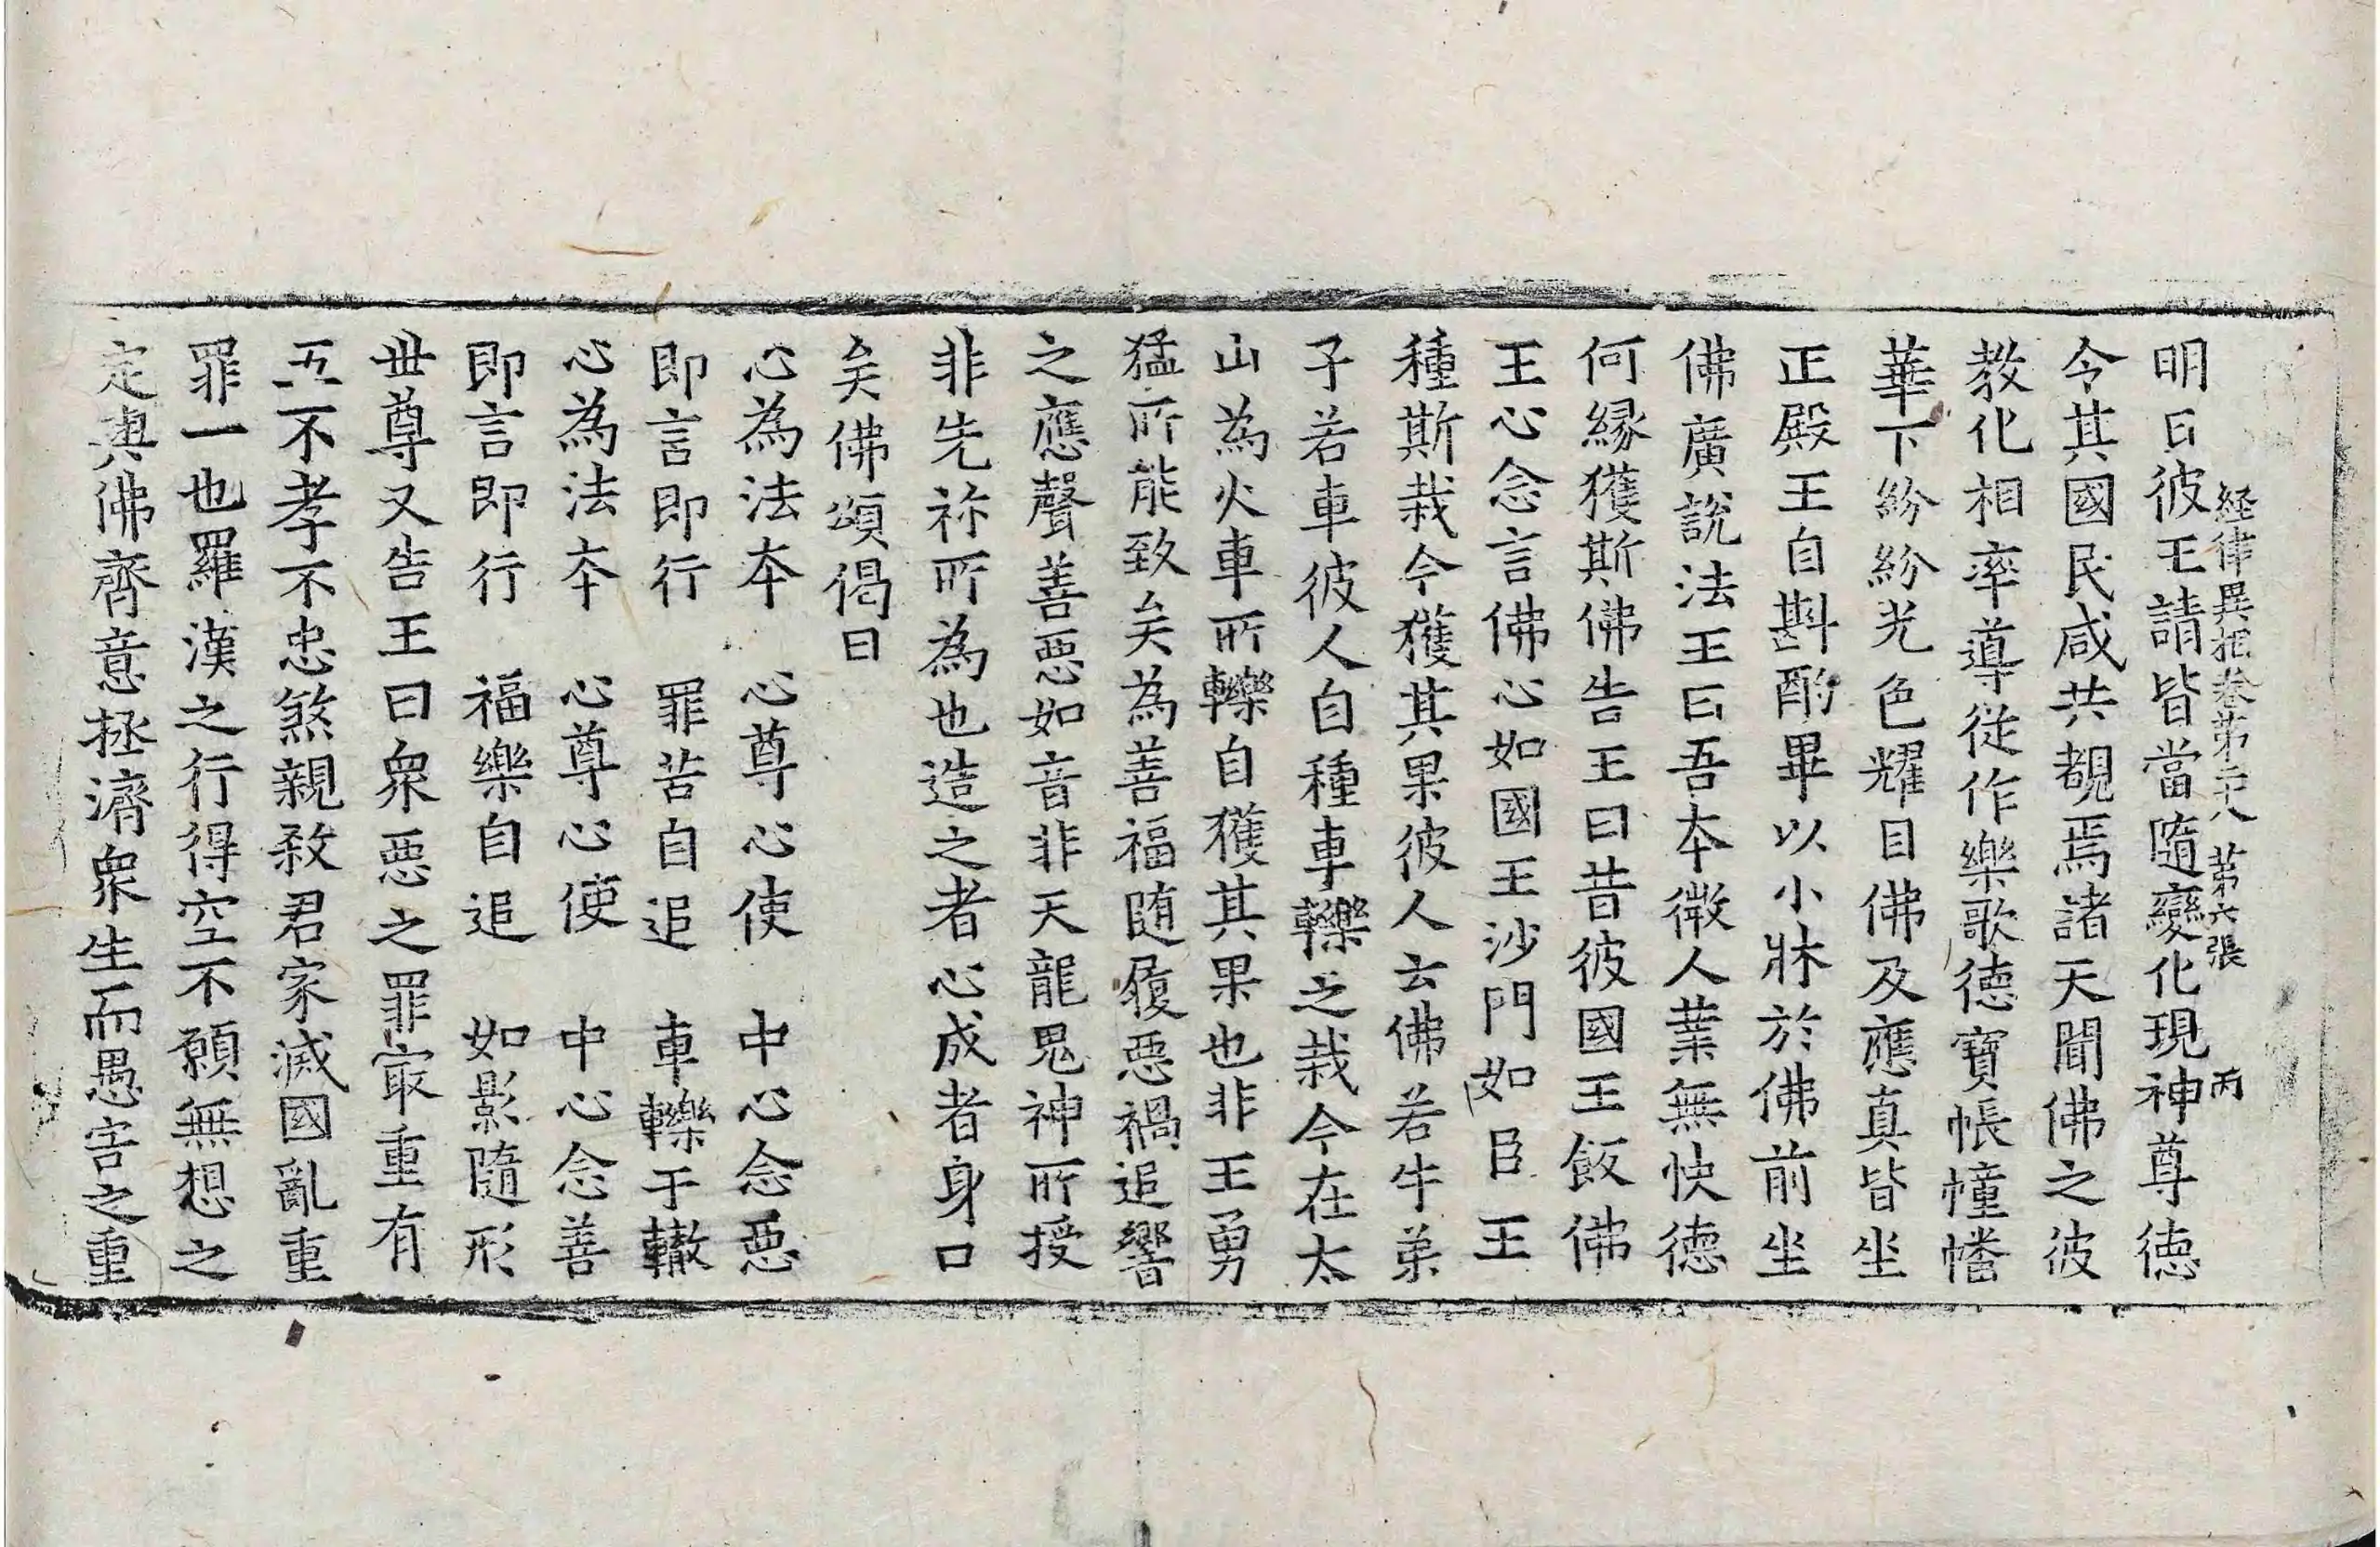 経律異相卷第二十八 第六張 丙
明日彼王請皆當隨變化現神尊德
令其國民咸共覩焉諸天聞佛之彼
教化相率導從作樂歌德寶帳幢幡
華下紛紛光色耀目佛及應真皆坐
正殿王自斟酌畢以小牀於佛前坐
佛廣說法王曰吾本微人業無快德
何縁獲斯佛告王曰昔彼國王飯佛
王心念言佛心如國王沙門如臣王
種斯栽今獲其果彼人云佛若牛弟
子若車彼人自種車轢之栽今在太
山為火車所轢自獲其果也非王勇
猛所能致矣為善福随履惡禍追響
之應聲善惡如音非天龍鬼神所授
非先祢所為也造之者心成者身口
矣佛頌偈曰
心為法本 心尊心使 中心念惡
即言即行 罪苦自追 車轢于轍
心為法本 心尊心使 中心念善
即言即行 福樂自追 如影隨形
世尊又告王曰衆惡之罪㝡重有
五不孝不忠煞親殺君家滅國亂重
罪一也羅漢之行得空不願無想之
定與佛齊意拯濟衆生而愚害之重